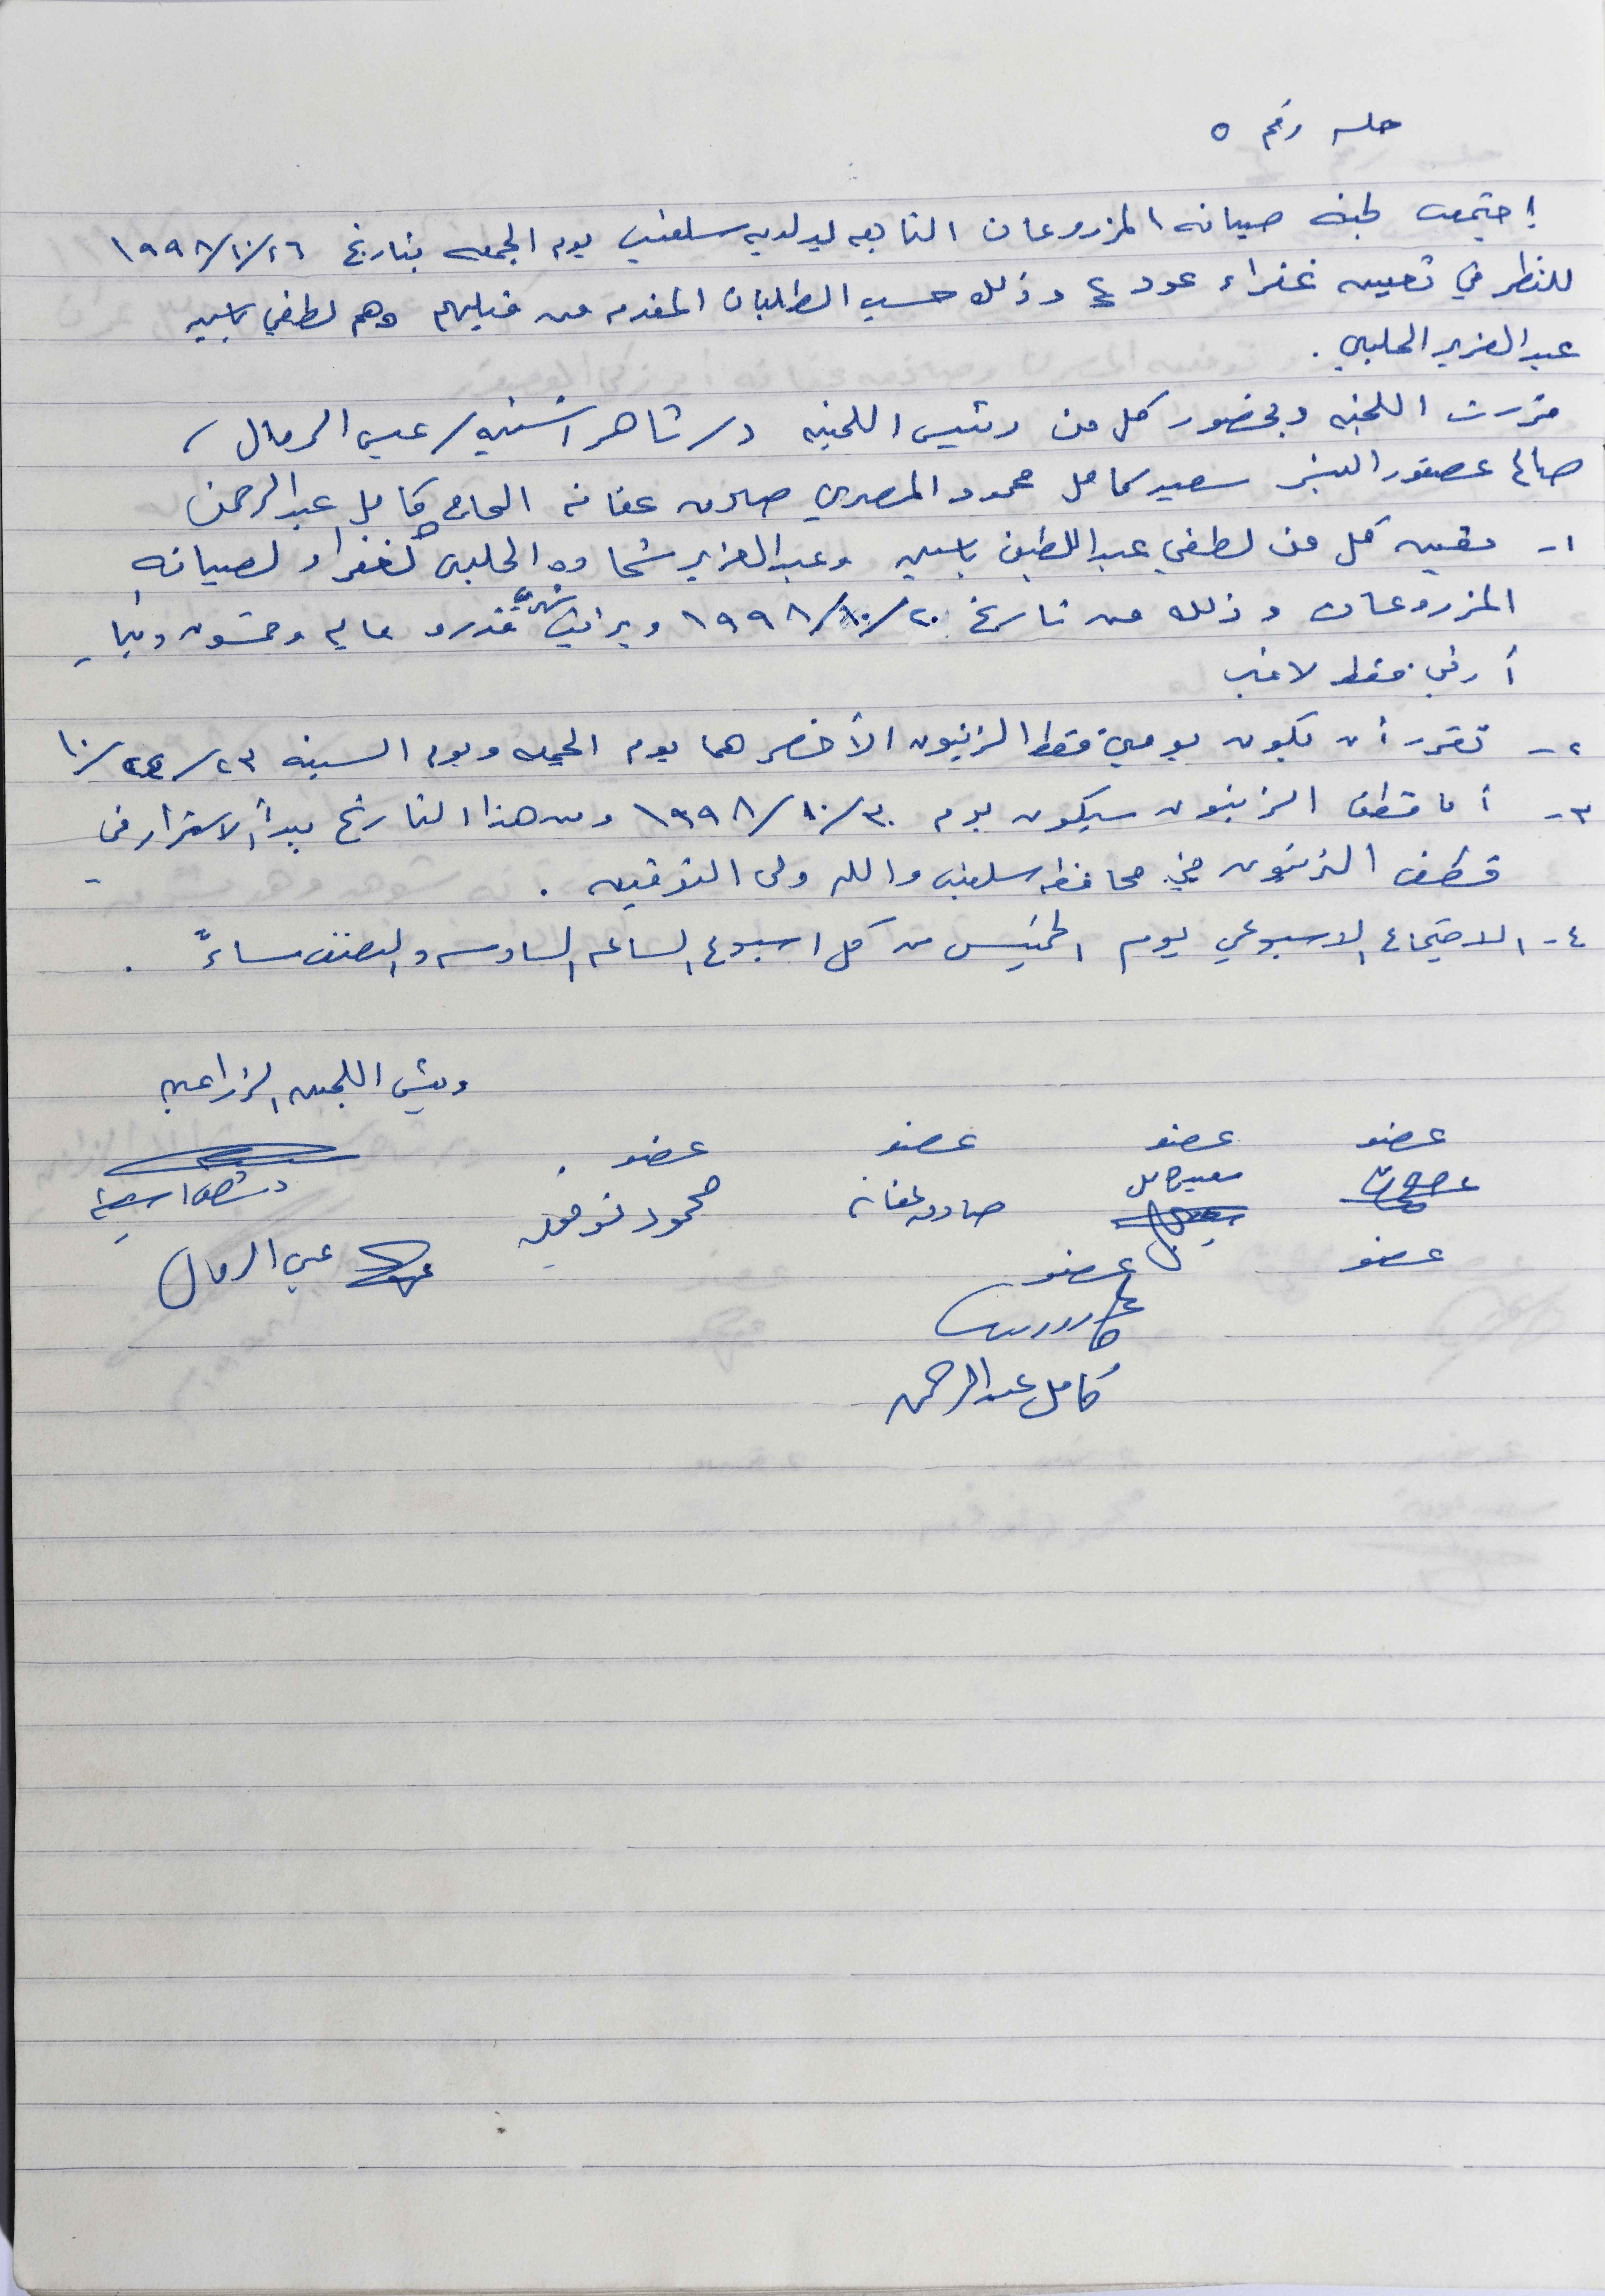 جلسه رقم ٥
إجتمعت لجنة صيانه المزروعات التابعه لبلديه سلفيت يوم الجمعه بتاريخ ١٩٩٨/١٠/١٦
للنظر في تعيين غفراء عدد ٤ وذلك حسب الطلبات المقدمه من قبلهم وهم لطفي ياسين
عبد العزيز الحلبي .
قررت اللجنه وبحضور كل من رئيس اللجنه د/ شاهر اشتيه / عيسى الرمال /
صالح عصفور سعيد كامل محمود المصري صادق عفانه الحاج كامل عبد الرحمن
١- تعيين كل من لطفي عبد اللطيف ياسين وعبد العزيز شحاده الحلبي كغفراء لصيانه
المزروعات وذلك من تاريخ ١٩٩٨/١٠/٢٠ وبراتب شهري قدره مايه وخمسون دينار
أردني فقط لا غير
٢- تقرر أن يكون يومي قطف الزيتون الأخضر هما يوم الجمعه ويوم السبت ٢٣/٢٤/١٠
٣- أما قطف الزيتون سيكون يوم ١٩٩٨/١٠/٣٠ ومن هذا التاريخ يبدأ الاستمرار في
قطف الزيتون في محافظه سلفيت والله ولي التوفيق .
٤- الاجتماع الاسبوعي يوم الخميس من كل اسبوع الساعه السادسه والنصف مساءً .
رئيس اللجنه الزراعيه
عضو عضو عضو عضو
سعيد كامل صادق عفانه محمود توفيق د. شاهر اشتيه
عضو عضو عيسى الرمال
كامل عبد الرحمن